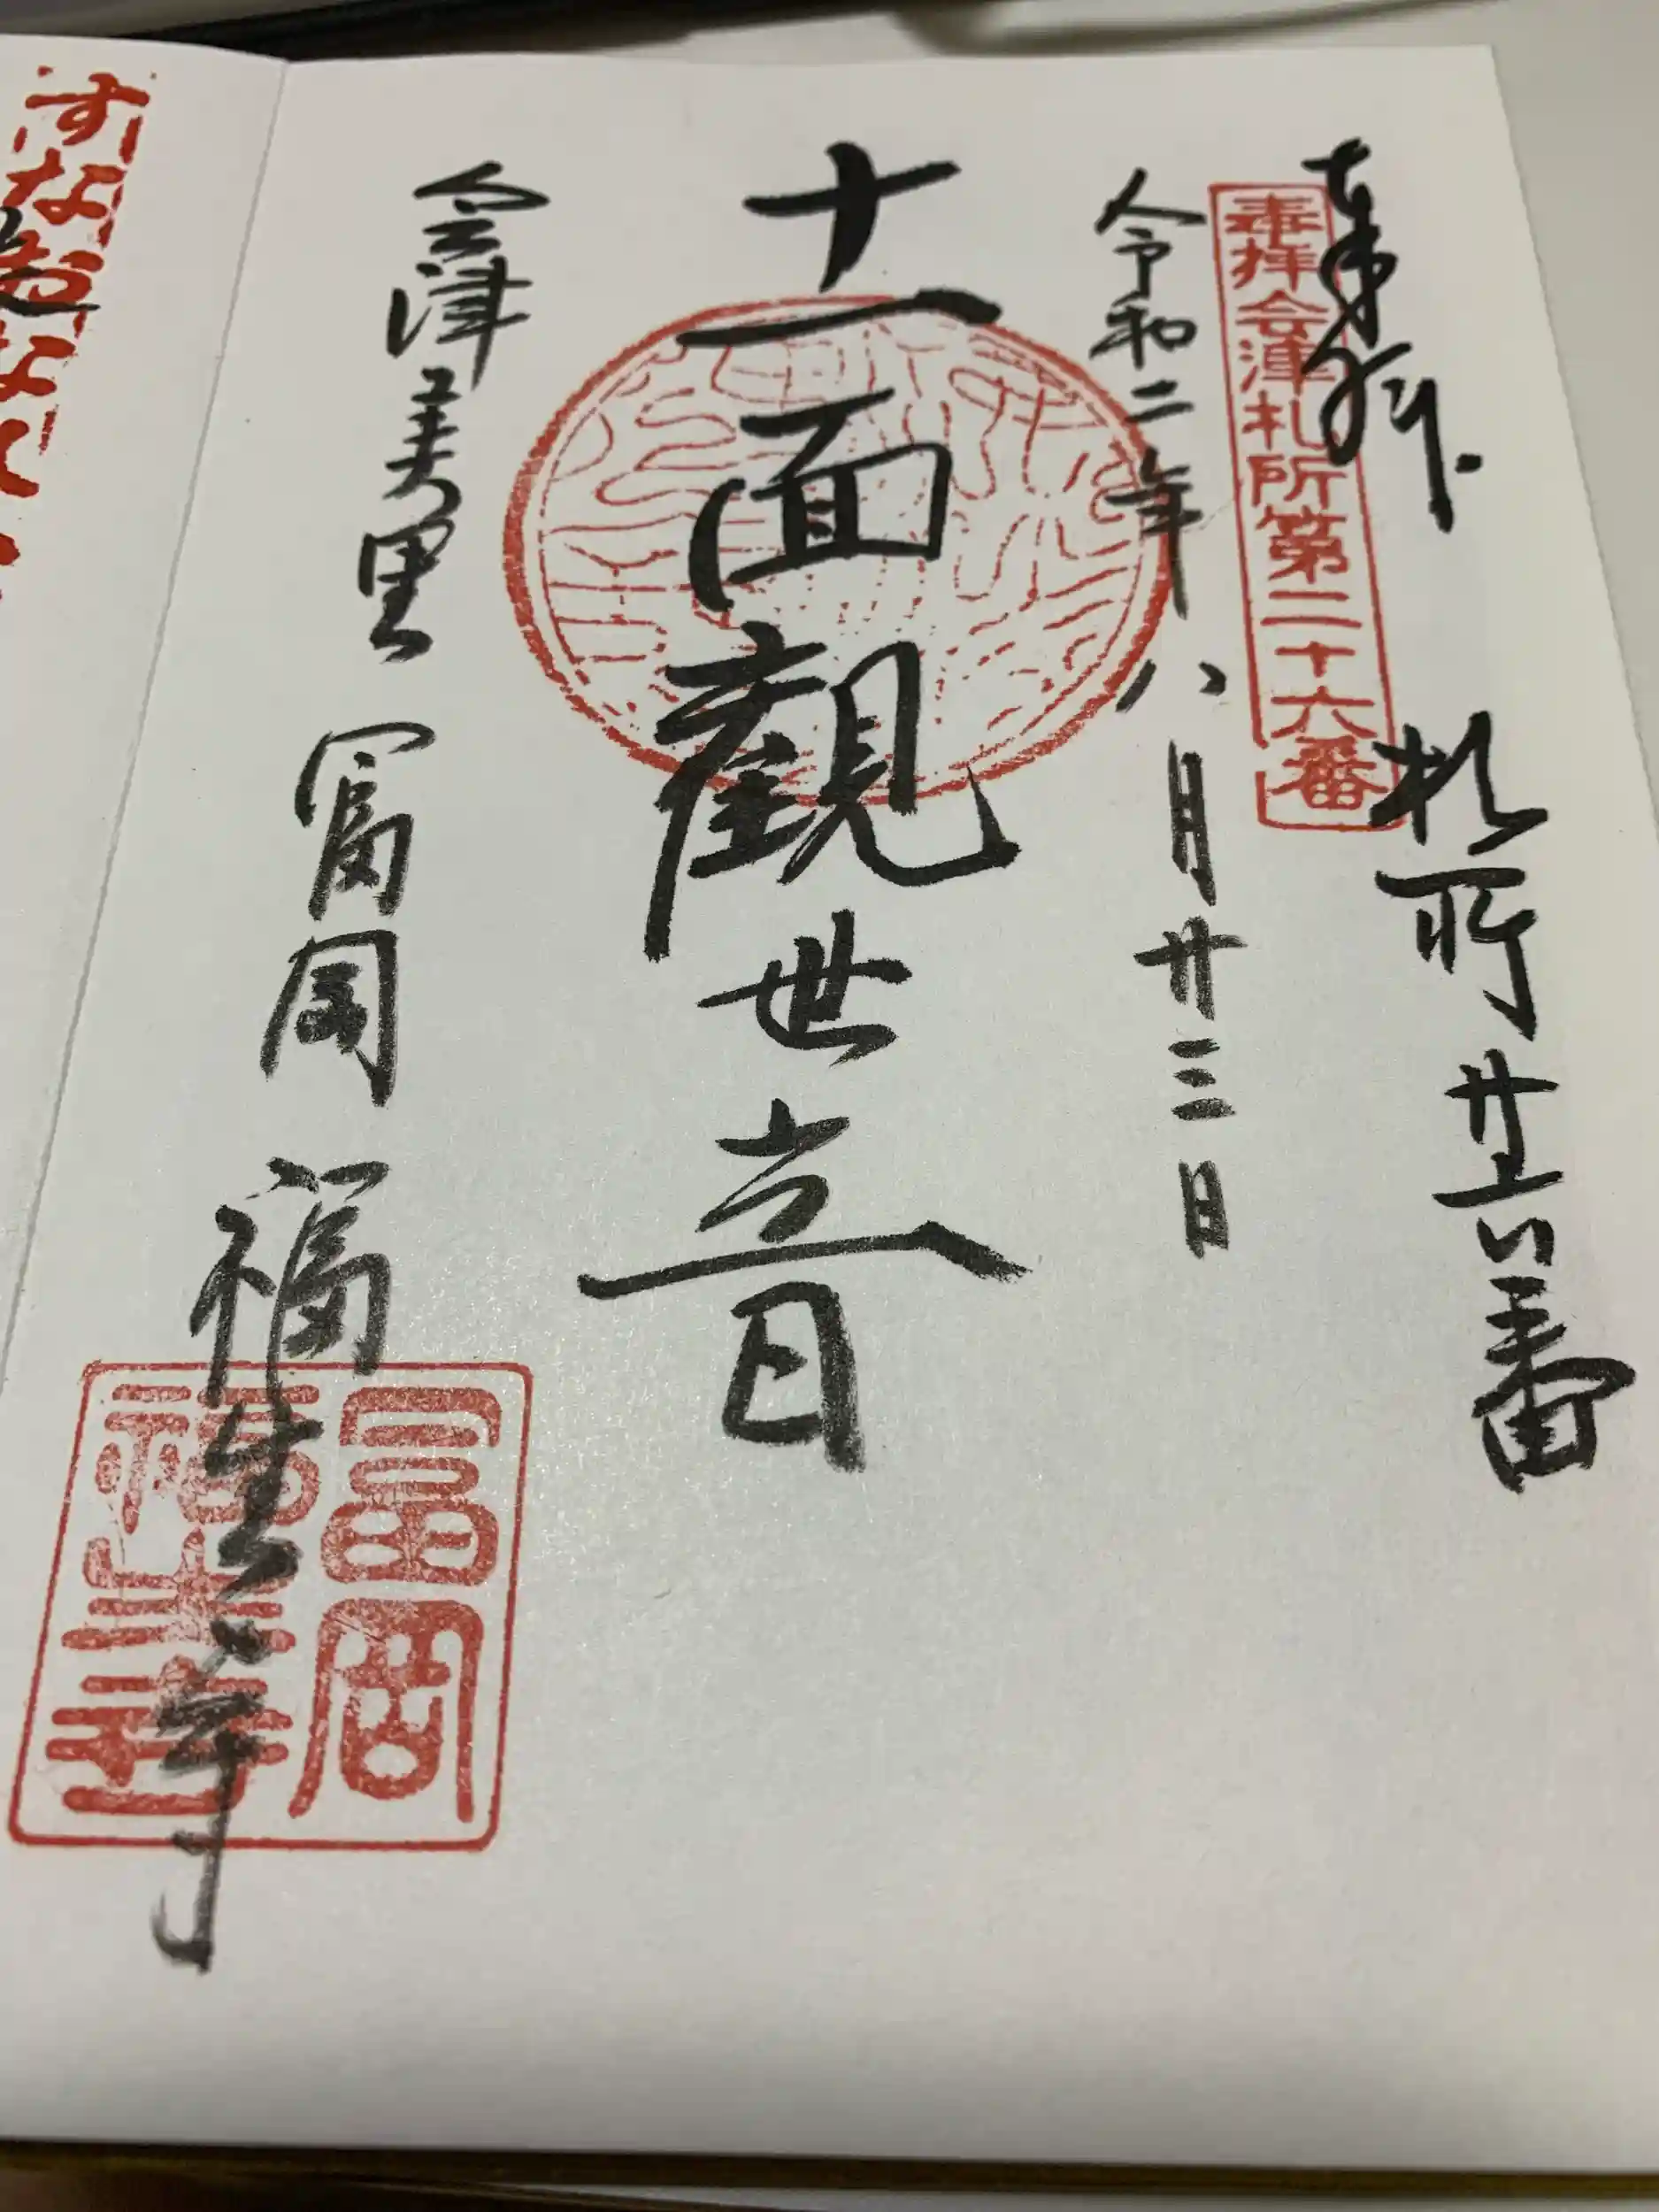 奉拝 札所廿六番
奉拝会津札所第二十六番
令和二年八月廿三日
十一面觀世音
会津美里 冨岡 福生寺
冨岡
福生寺
すなおな